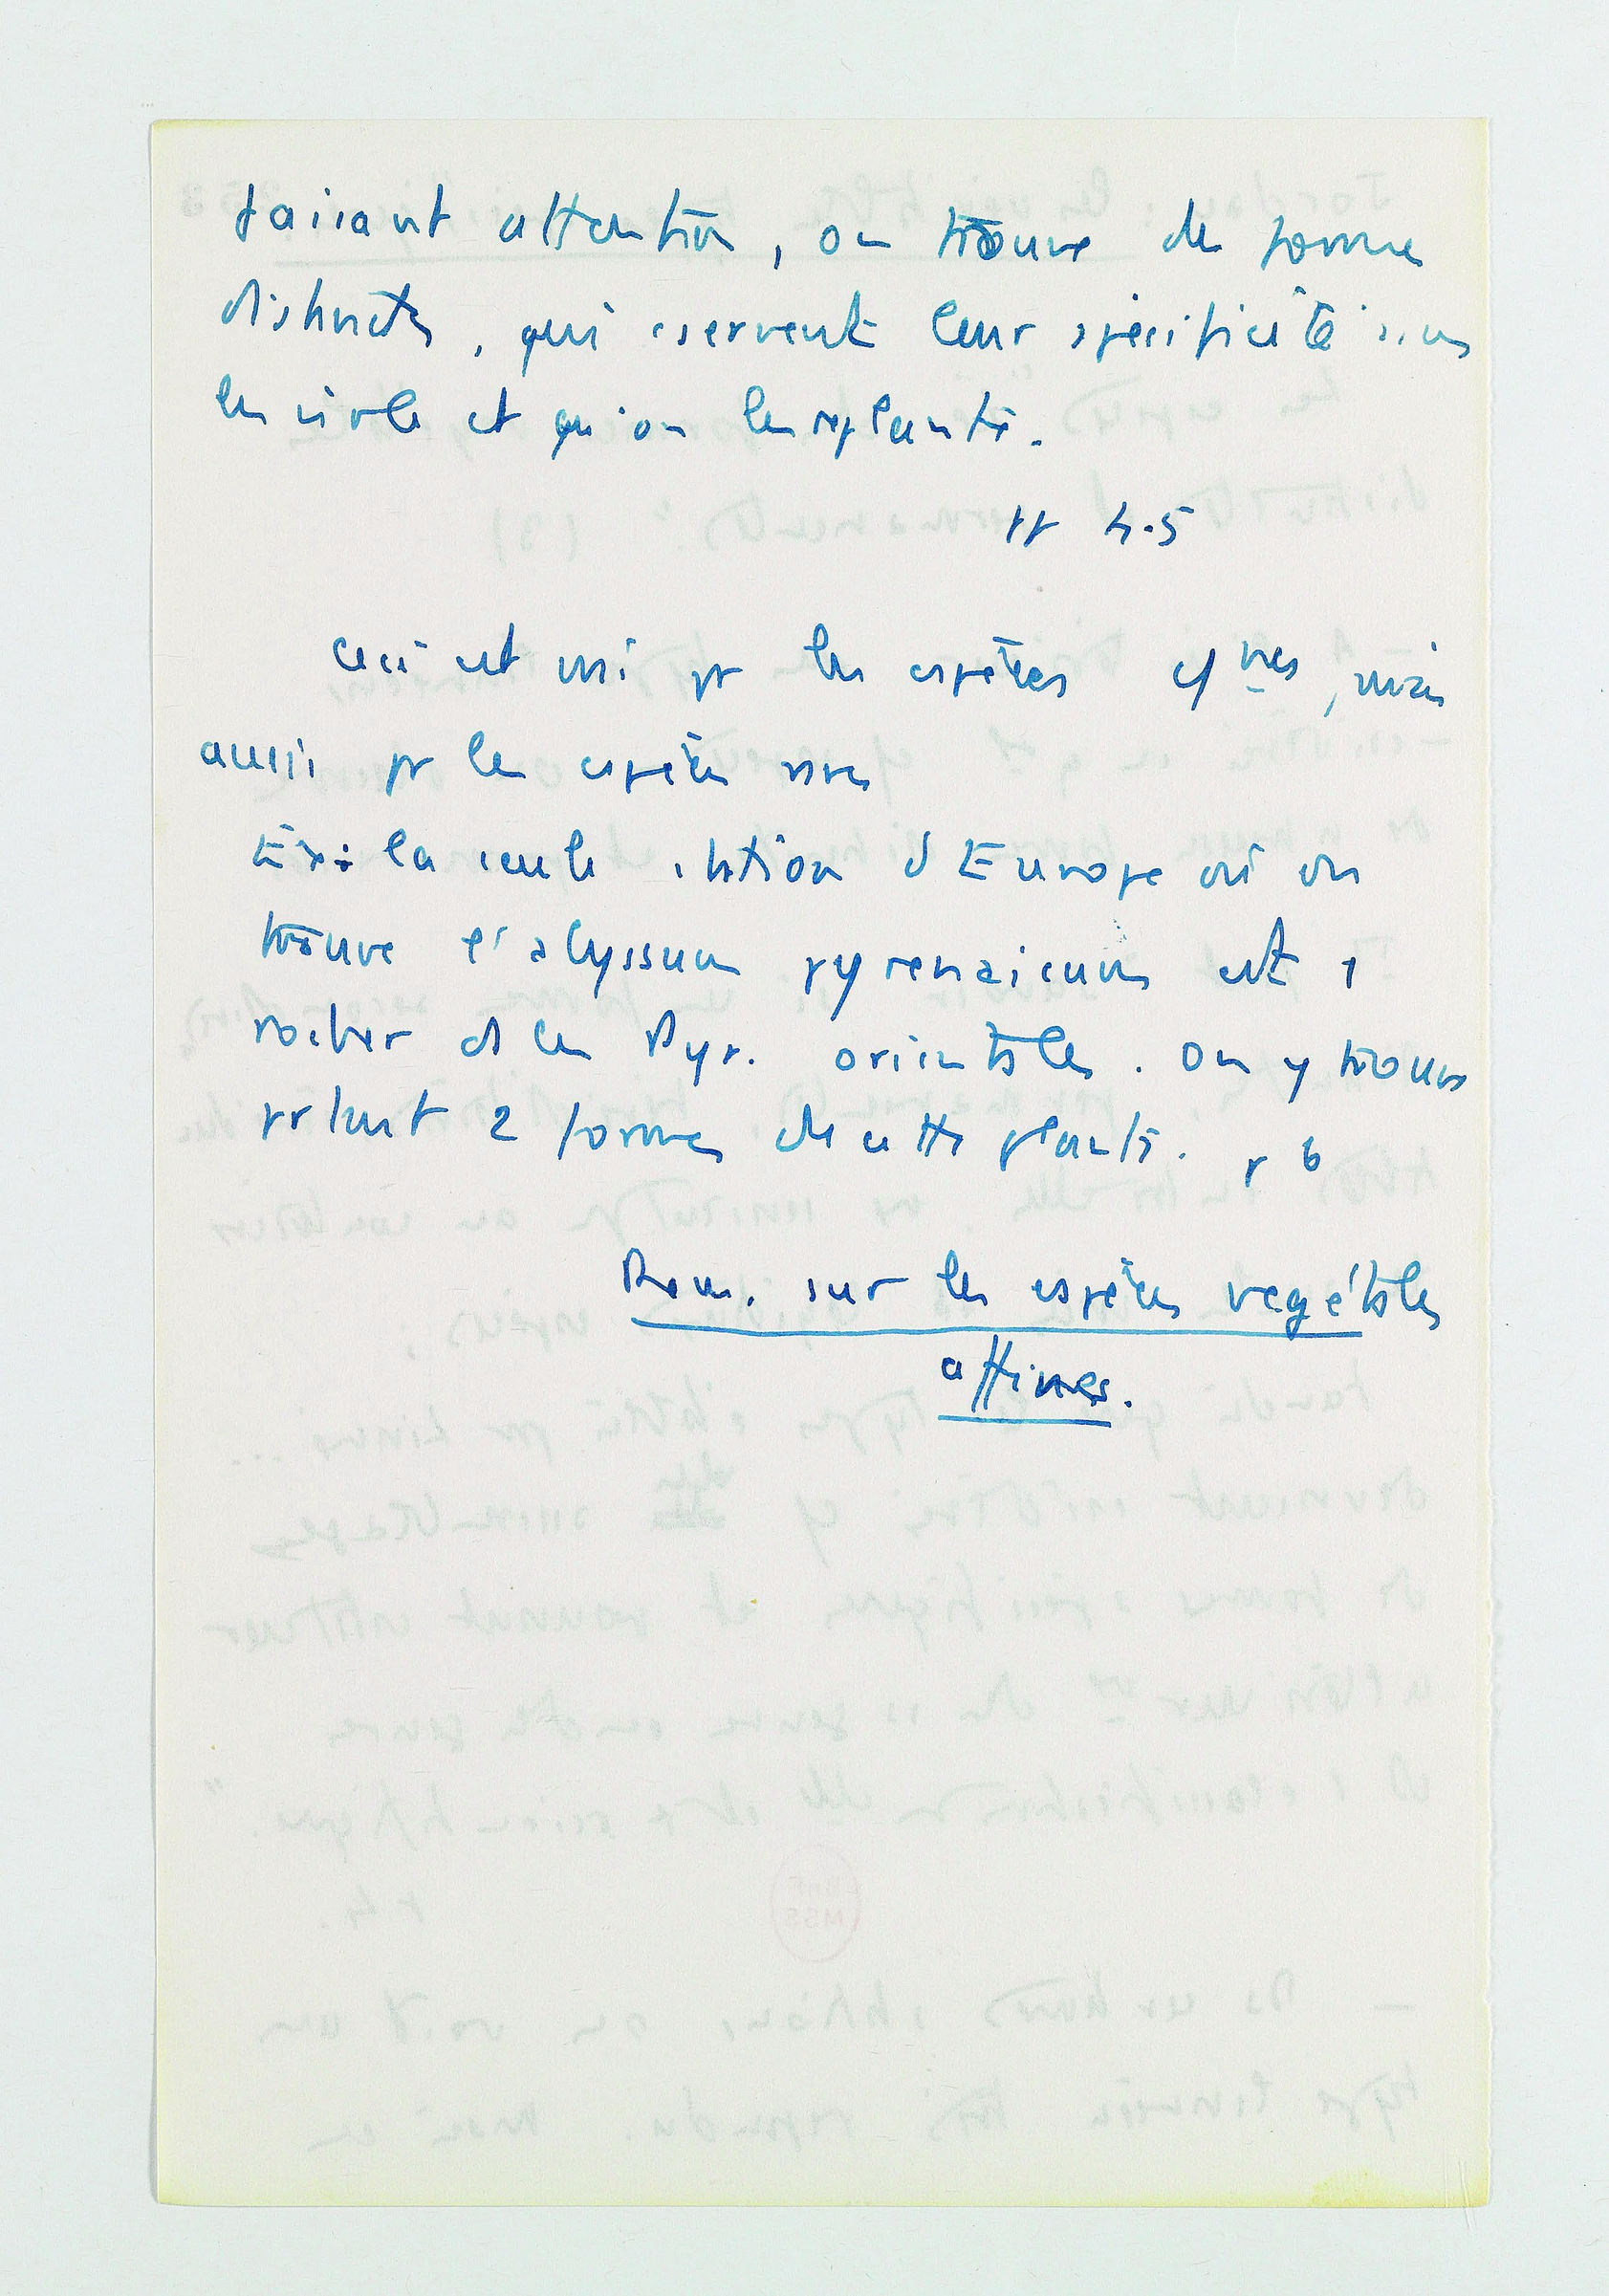 faisant attention, on trouve des formes
distinctes, qui cservent leur spécificité si on
les isole et qu'on les replante.
pp 4-5
Ceci est vrai pr les espèces cynes, mais
aussi pr les espèces rares
Ex: la seule station d'Europe où on
trouve l'alyssum pyrenaicum est 1
rocher ds les Pyr. orientales. On y trouve
prtant 2 formes de cette plante. p 6
Rem. sur les espèces vegétales
affines.